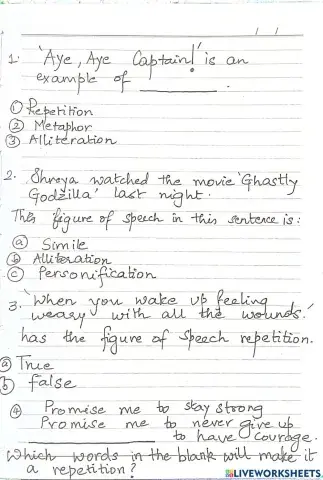 1. 'Aye, Aye Captain!' is an
example of __________.
① Repetition
② Metaphor
③ Alliteration
2. Shreya watched the movie 'Ghastly
Godzilla' last night.
This figure of speech in this sentence is:
ⓐ Simile
ⓑ Alliteration
ⓒ Personification
3. 'When you wake up feeling
weary with all the wounds.'
has the figure of speech repetition.
ⓐ True
ⓑ False
④ Promise me to stay strong
Promise me to never give up
__________ to have courage.
Which words in the blank will make it
a repetition?
LIVEWORKSHEETS